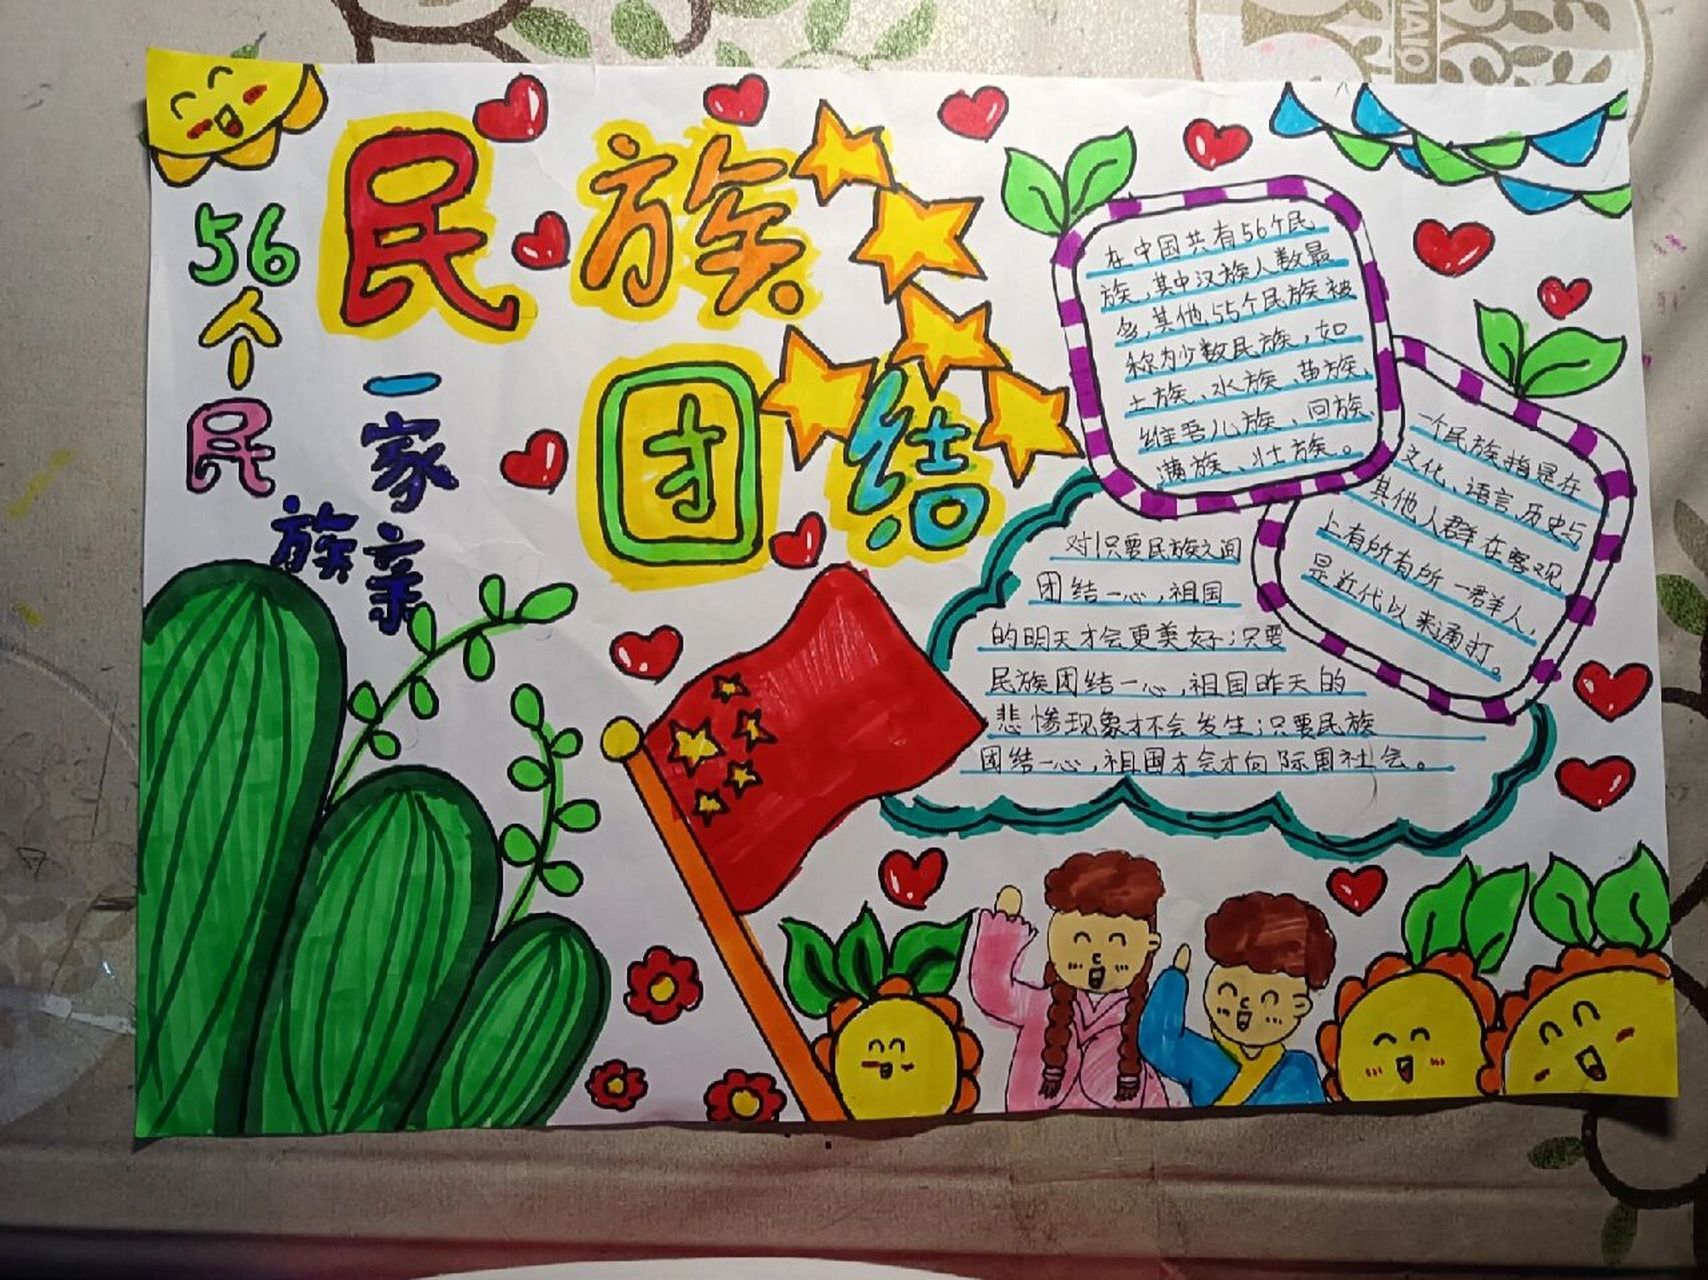 民族
团结
56个民族
一家亲
在中国共有56个民
族,其中汉族人数最
多,其他55个民族被
称为少数民族,如
土族、水族、苗族、
维吾儿族、回族、
满族、壮族。
一个民族指是在
文化、语言、历史与
其他人群在客观
上有所有所一群羊人,
是近代以来通打。
对!只要民族之间
团结一心,祖国
的明天才会更美好;只要
民族团结一心,祖国昨天的
悲惨现象才不会发生;只要民族
团结一心,祖国才会才向际国社会。
MAIO